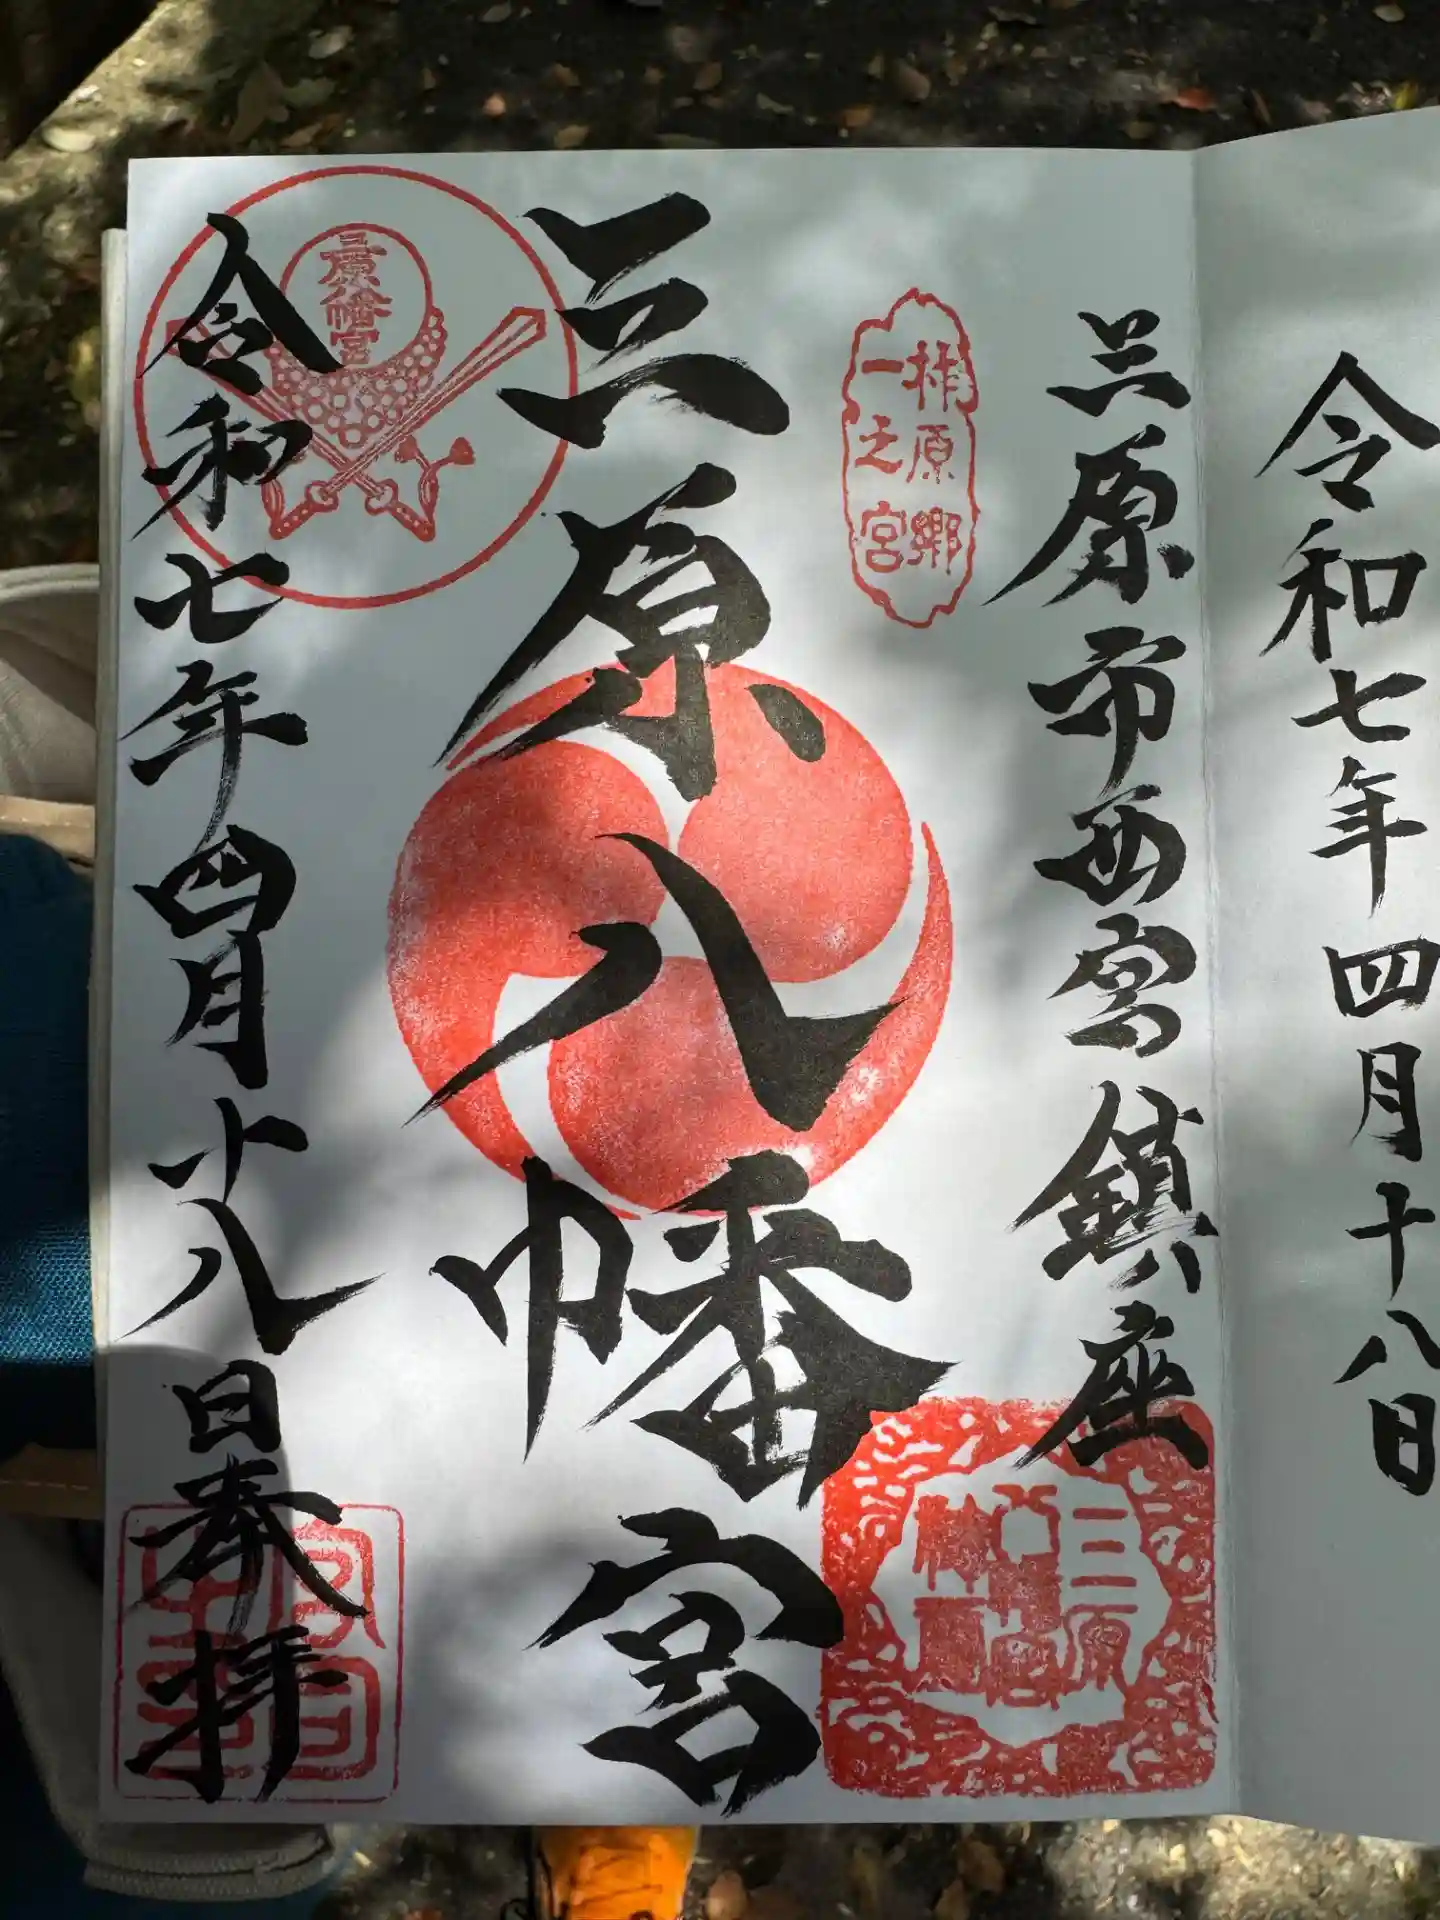 令和七年四月十八日
三原市西宮鎮座
柞原郷
一之宮
三原
八幡宮
三原八幡宮
三原八幡宮
令和七年四月十八日奉拝